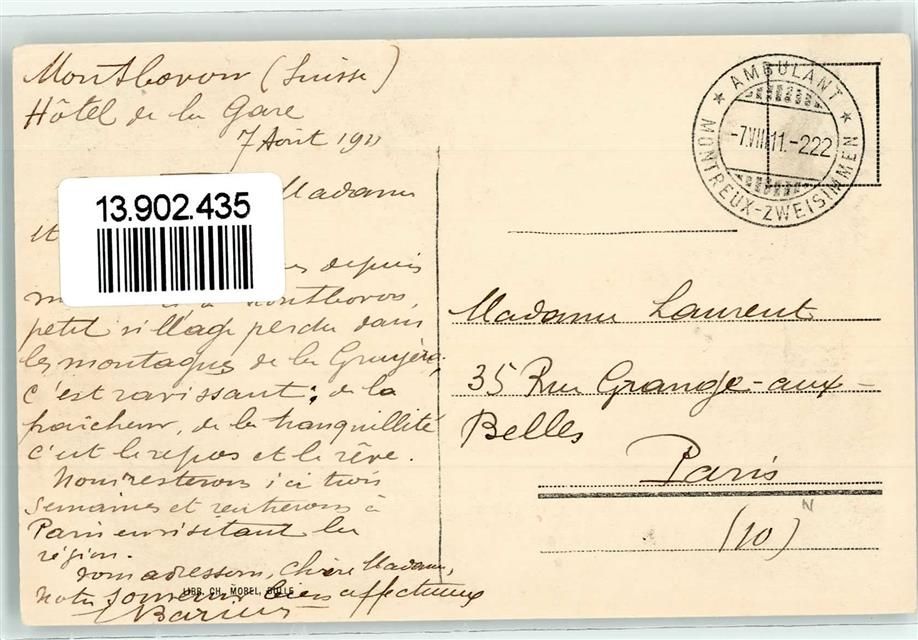 Montbovon (Suisse)
Hôtel de la Gare
7 Août 1911
Madame
et
depuis
à Montbovon,
petit village perdu dans
les montagnes de la Gruyère,
c'est ravissant; de la
fraîcheur, de la tranquillité
c'est le repos et le rêve.
Nous resterons ici trois
semaines et rentrerons à
Paris en visitant la
région.
Nous adressons, Chère Madame,
notre souvenir bien affectueux
13.902.435
LIBR. CH. MOREL, BULLE
★ AMBULANT ★
-7.VIII.11.-222
MONTREUX-ZWEISIMMEN
Madame Laurent
35 Rue Grange-aux-
Belles
Paris
(10)
N